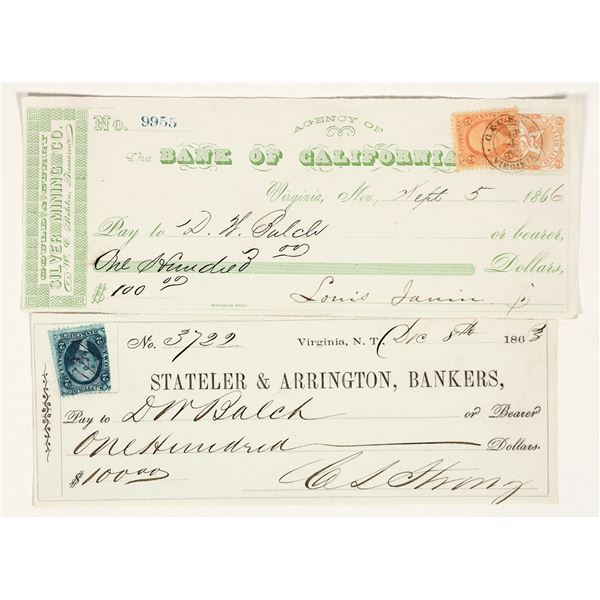 GOULD & CURRY
SILVER MINING CO.
No. 9955
AGENCY OF
The BANK OF CALIFORNIA
Virginia, Nev, Sept 5 1866
Pay to D. W. Balch or bearer,
One Hundred 00 Dollars,
$ 100 00
Louis Janin Jr
No. 3722 Virginia, N. T. Dec 8th 1863
STATELER & ARRINGTON, BANKERS,
Pay to D W Balch or Bearer
One Hundred Dollars.
$ 100 00
C L Strong